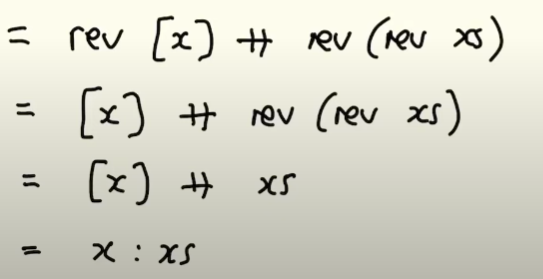 = rev [x] ++ rev (rev xs)
= [x] ++ rev (rev xs)
= [x] ++ xs
= x : xs